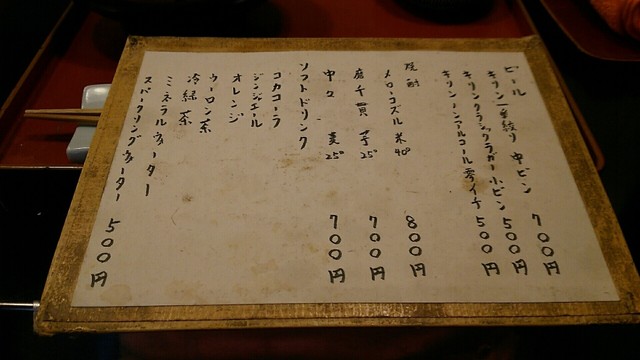 ビール
キリン一番絞り 中ビン 700円
キリンクラシックラガー 小ビン 500円
キリンノンアルコール零イチ 500円
焼酎
メローコズル 米 40° 800円
千貫 芋 25° 700円
中々 麦 25° 700円
ソフトドリンク
コカコーラ
ジンジエール
オレンジ
ウーロン茶
冷緑茶
ミネラルウォーター
スパークリングウォーター 500円